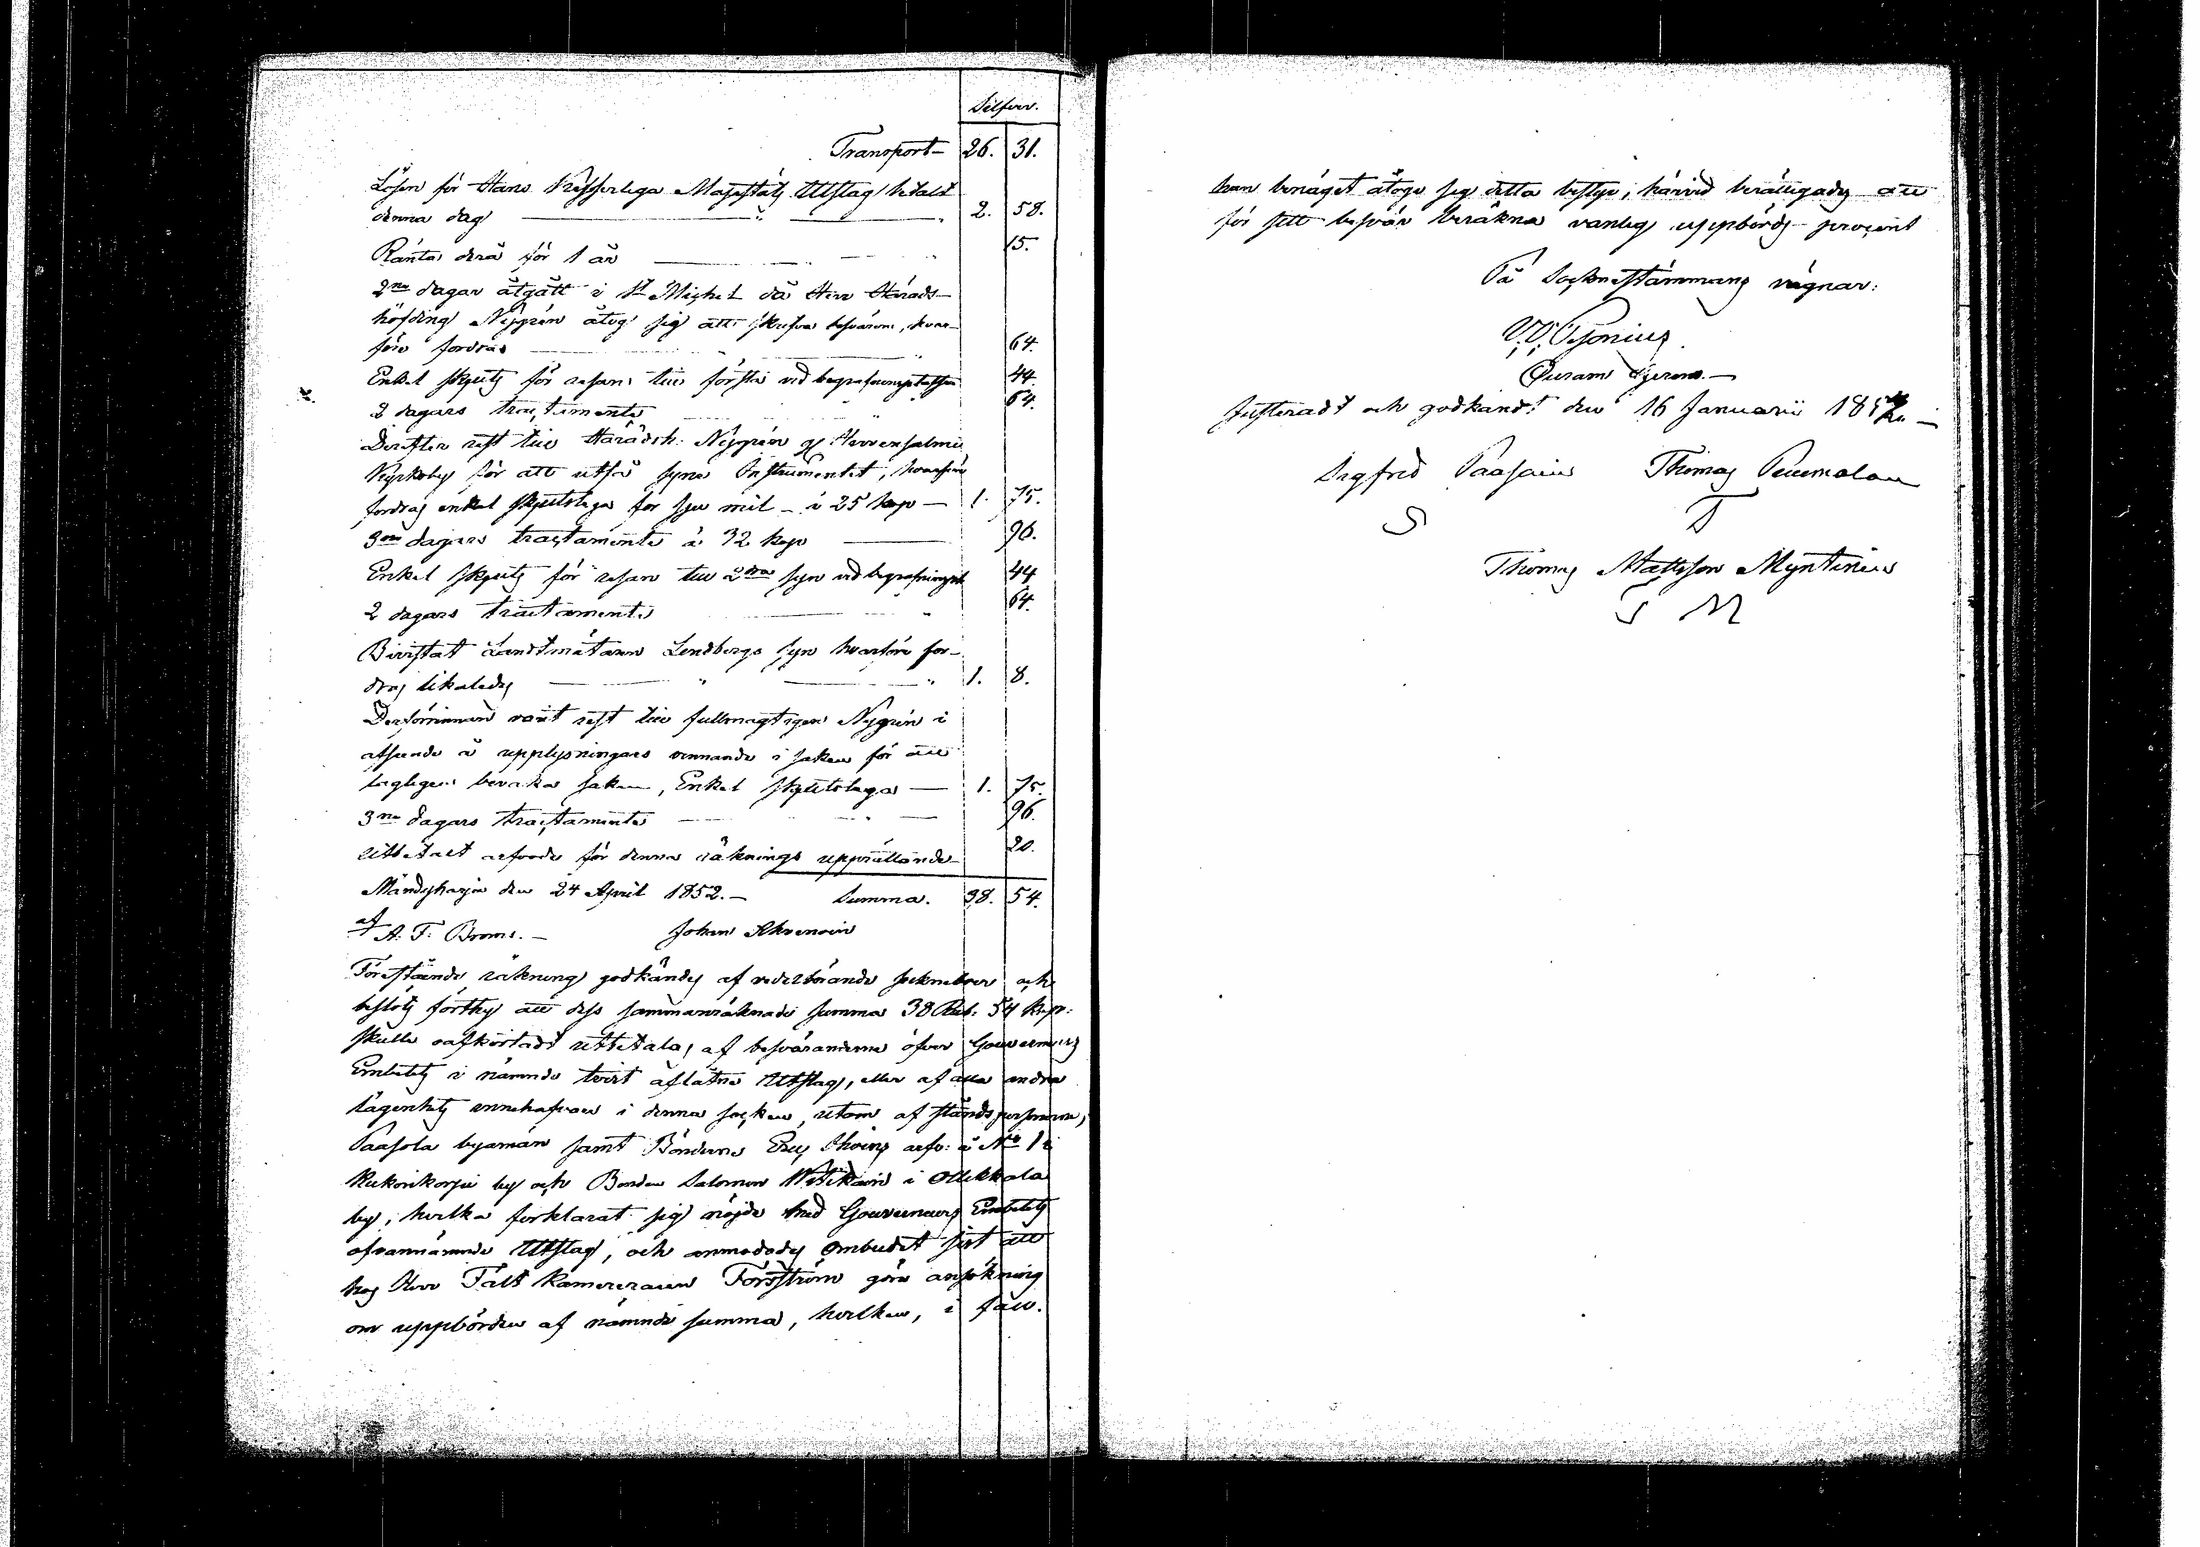 Silfver.
Transport— 26. 31.
Lösen för Hans Kejserliga Majestäts Utslag betalt
denna dag — " — " 2. 58.
Ränta derå för 1 år — " — " 15.
2ne dagar åtgått i St Michel då Herr Härads-
höfding Nygrén åtog sig att skrifva besvären, hvar-
före fordras — " 64.
Enkel skjuts för resan till första vid begrafningsplatsen 44.
2 dagars tractamente " 64.
Derefter rest till Häradsh: Nygrén
Kyrkoby för att utfå syne Instrumentet, hvarföre
fordras enkel skjutslega för sju mil – à 25 kop — 1. 75.
3ne dagars tractamente à 32 kop — 96.
Enkel skjuts för resan till 2dra syn vid begrafningspl. 44
2 dagars tractamente " 64.
Bivistat Landtmätaren Lendbergs syn hvarföre for-
dras likaledes — " — " 1. 8.
Derförinnan varit rest till fullmägtigen Nygrén i
afseende å upplysningars vinnande i saken för att
lagligen bevaka saken, Enkel skjutslega — 1. 75.
3ne dagars tractamente — " — 96.
Utbetalt arfvode för denna räknings upprättande— 20.
Mändyharju den 24 April 1852.— Summa. 38. 54.
af A. F. Broms.— Johan
Förestående räkning godkändes af vederbörande sockneboer och
beslöts förthy att dess sammanräknade summa 38 Rub: 54 Kop:
skulle oafkortadt utbetalas af besväranderne öfver Gouverneurs
Embetets i nämnde tvist aflåtne Utslag, eller af alla andra
lägenhets innehafvare i denna socken, utom af ståndspersoner,
Paasola byamän samt Bönderne arfv: à No 1 i
by och Bonden Salomon i Ollikkala
by, hvilka förklarat sig nöjde med Gouverneurs Embetets
ofvannämnde Utslag, och anmodades Ombudet sist att
hos Herr Fält Kamereraren Forsström göra ansökning
om uppbörden af nämnde summa, hvilken, i fall.
han benäget åtoge sig detta bestyr, härvid berättigades att
för sitt besvär beräkna vanlig uppbörds procent
På Sockenstämmans vägnar:
Justeradt och godkändt den 16 Januarii 185
Sigfrid Paasoin Thomas
S T
Thomas Mattsson Myntinen
T M